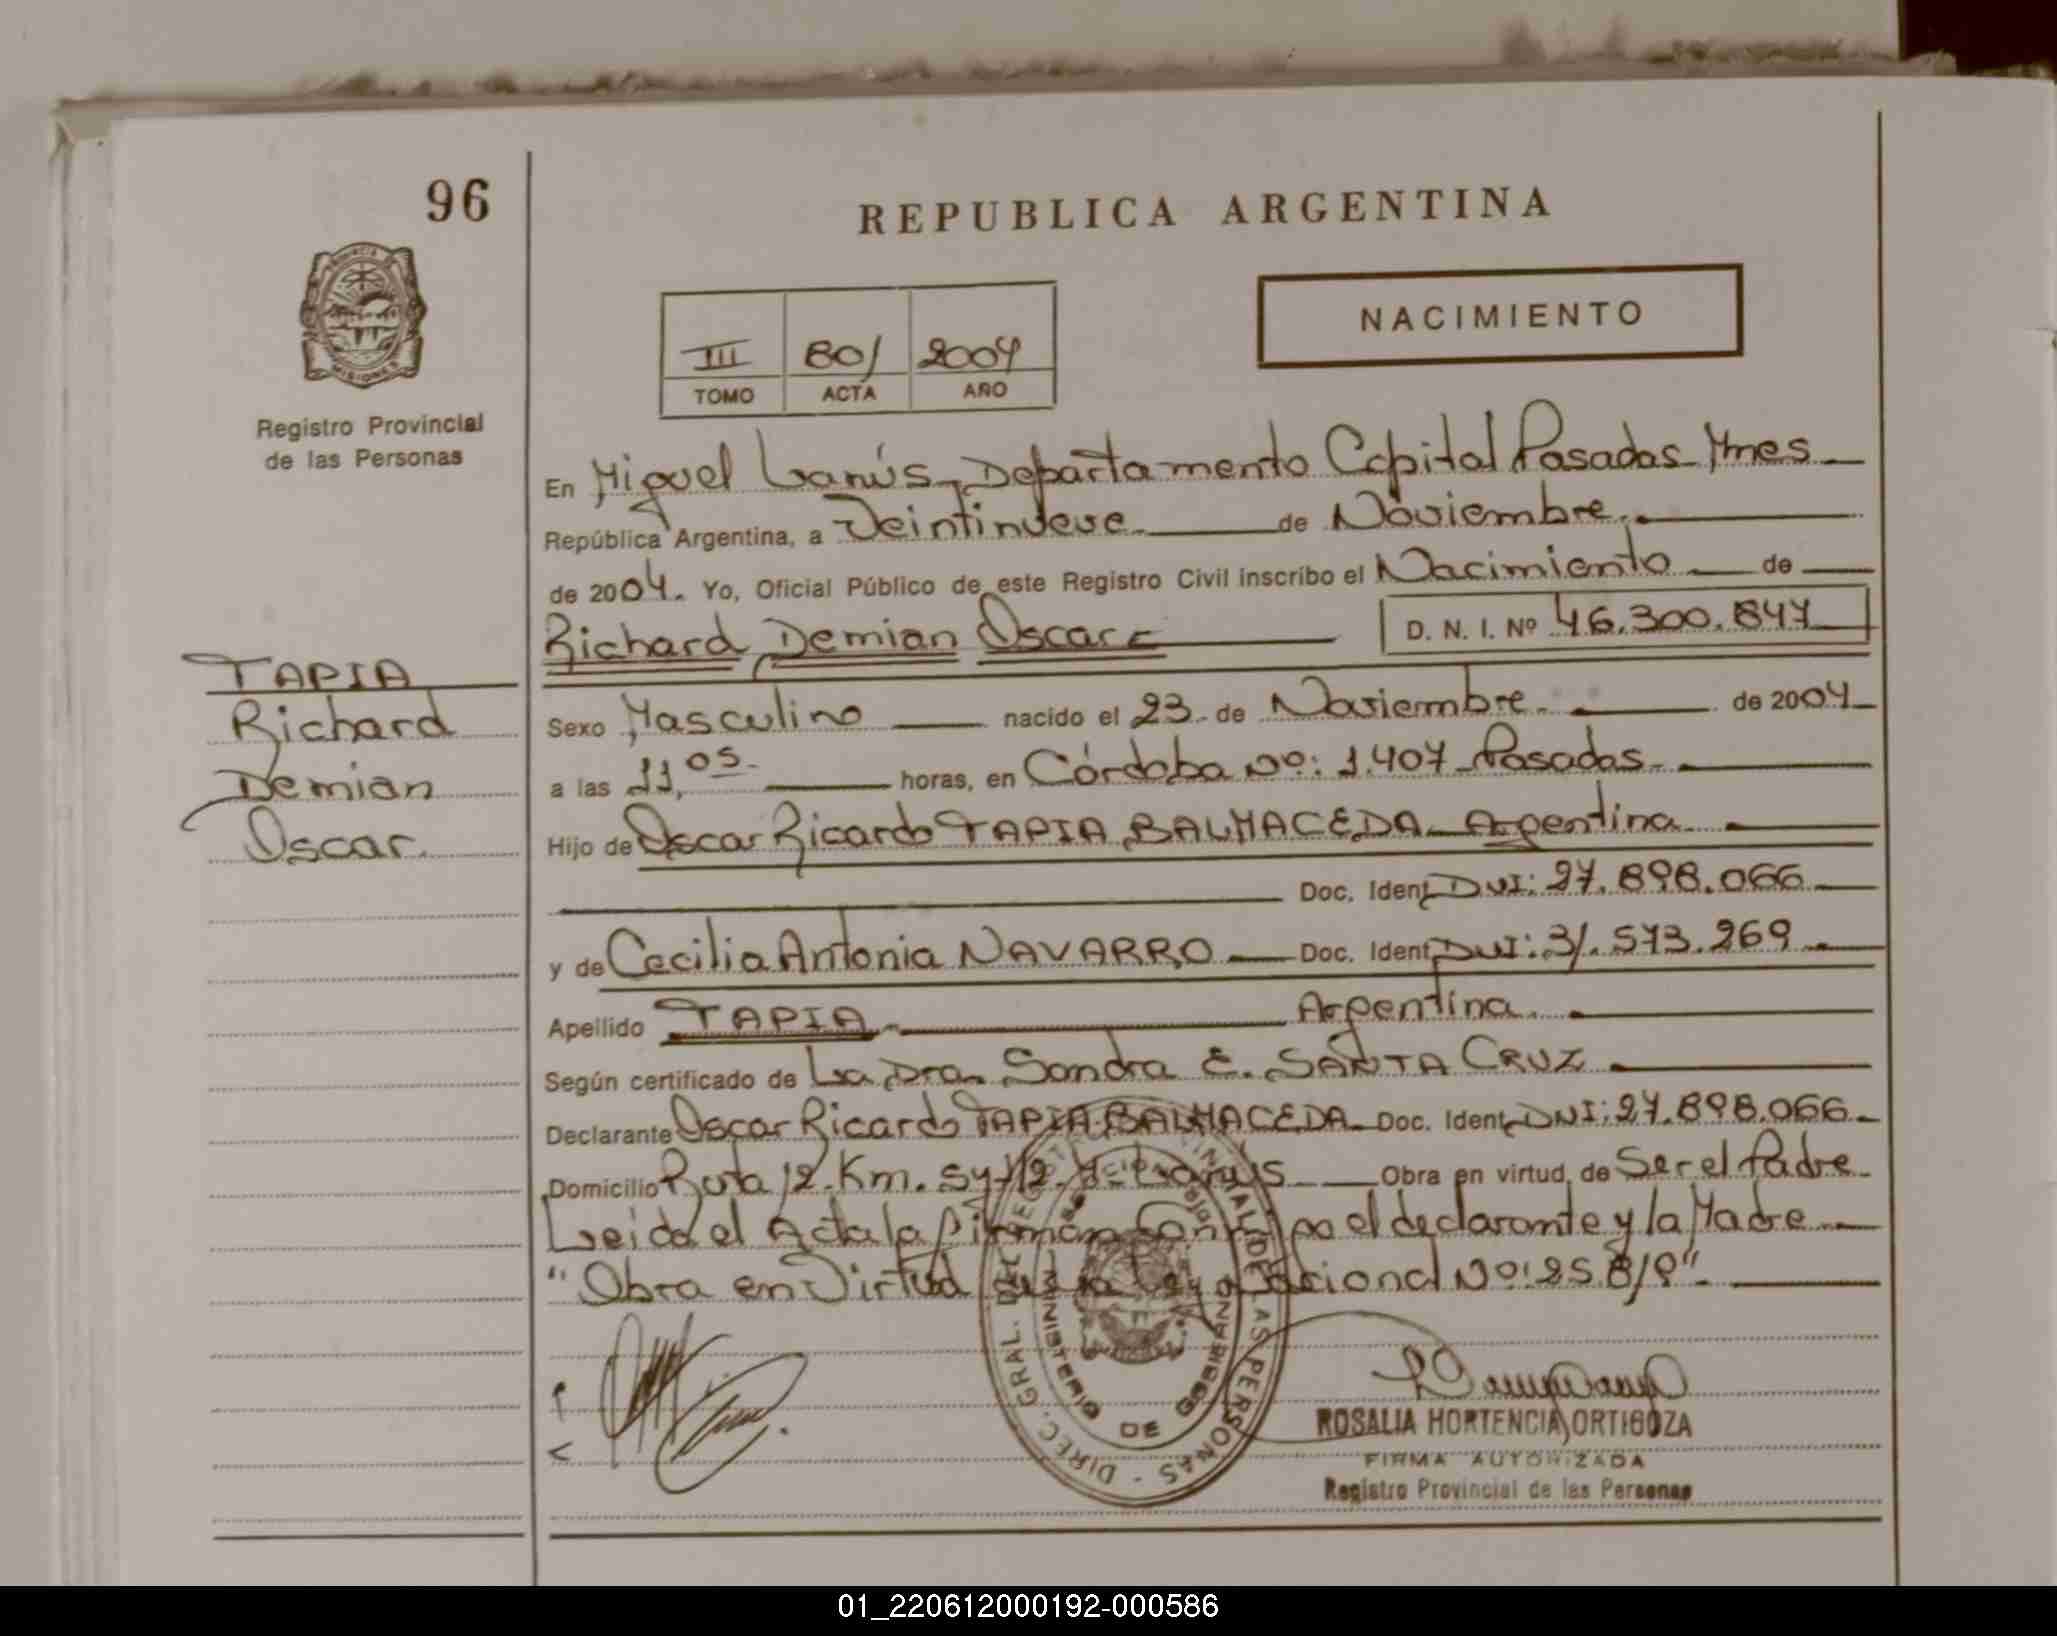 96
REPUBLICA ARGENTINA
NACIMIENTO
III 801 2004
TOMO ACTA AÑO
PROVINCIA
MISIONES
Registro Provincial
de las Personas
En Miguel Lanús, Departamento Capital Posadas Mnes
República Argentina, a Veintinueve de Noviembre.
de 2004. Yo, Oficial Público de este Registro Civil inscribo el Nacimiento de
Richard Demian Oscar D. N. I. Nº 46.300.847
TAPIA
Richard
Demian
Oscar.
Sexo Masculino nacido el 23 de Noviembre. de 2004
a las 11,05 horas, en Córdoba Nº: 1.407 Posadas
Hijo de Oscar Ricardo TAPIA BALMACEDA Argentina
Doc. Ident. DNI: 27.898.066
y de Cecilia Antonia NAVARRO Doc. Ident. DNI: 31.573.269
Apellido TAPIA Argentina.
Según certificado de La Dra. Sandra E. SANTA CRUZ
Declarante Oscar Ricardo TAPIA BALMACEDA Doc. Ident. DNI: 27.898.066
Domicilio Ruta 12 Km. Lanús Obra en virtud de Ser el Padre
Leida el Acta la firman el declarante y la Madre
"Obra en Virtud de la Ley Nacional Nº: 25.819".
DIREC. GRAL. DEL REGISTRO PROVINCIAL DE LAS PERSONAS
MINISTERIO DE GOBIERNO
ROSALIA HORTENCIA ORTIGOZA
FIRMA AUTORIZADA
Registro Provincial de las Personas
01_220612000192-000586